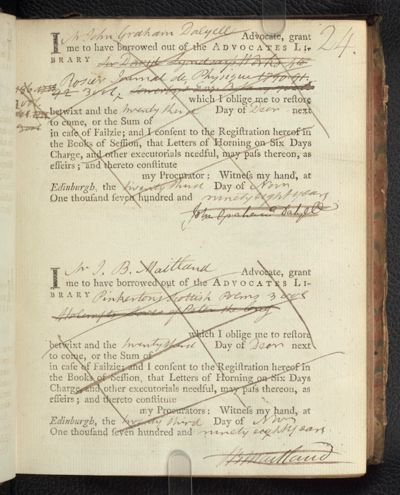 24.
I Mr John Graham Dalyell Advocate, grant
me to have borrowed out of the ADVOCATES LI-
BRARY Sir David Lyndsay's Works
Rosier Journal de Physique 1790 91.
92 3 vols.
which I oblige me to restore
betwixt and the twenty third Day of Decr next
to come, or the Sum of
in case of Failzie; and I consent to the Registration hereof in
the Books of Session, that Letters of Horning on Six Days
Charge, and other executorials needful, may pass thereon, as
effeirs; and thereto constitute
my Procurator: Witness my hand, at
Edinburgh, the twenty third Day of Novr
One thousand seven hundred and ninety eight years
John Graham Dalyell
I Mr J. B. Maitland Advocate, grant
me to have borrowed out of the ADVOCATES LI-
BRARY Pinkertons Scottish Poems 3 vols
which I oblige me to restore
betwixt and the twenty third Day of Decr next
to come, or the Sum of
in case of Failzie; and I consent to the Registration hereof in
the Books of Session, that Letters of Horning on Six Days
Charge, and other executorials needful, may pass thereon, as
effeirs; and thereto constitute
my Procurators: Witness my hand, at
Edinburgh, the twenty third Day of Novr
One thousand seven hundred and ninety eight years.
JB Maitland